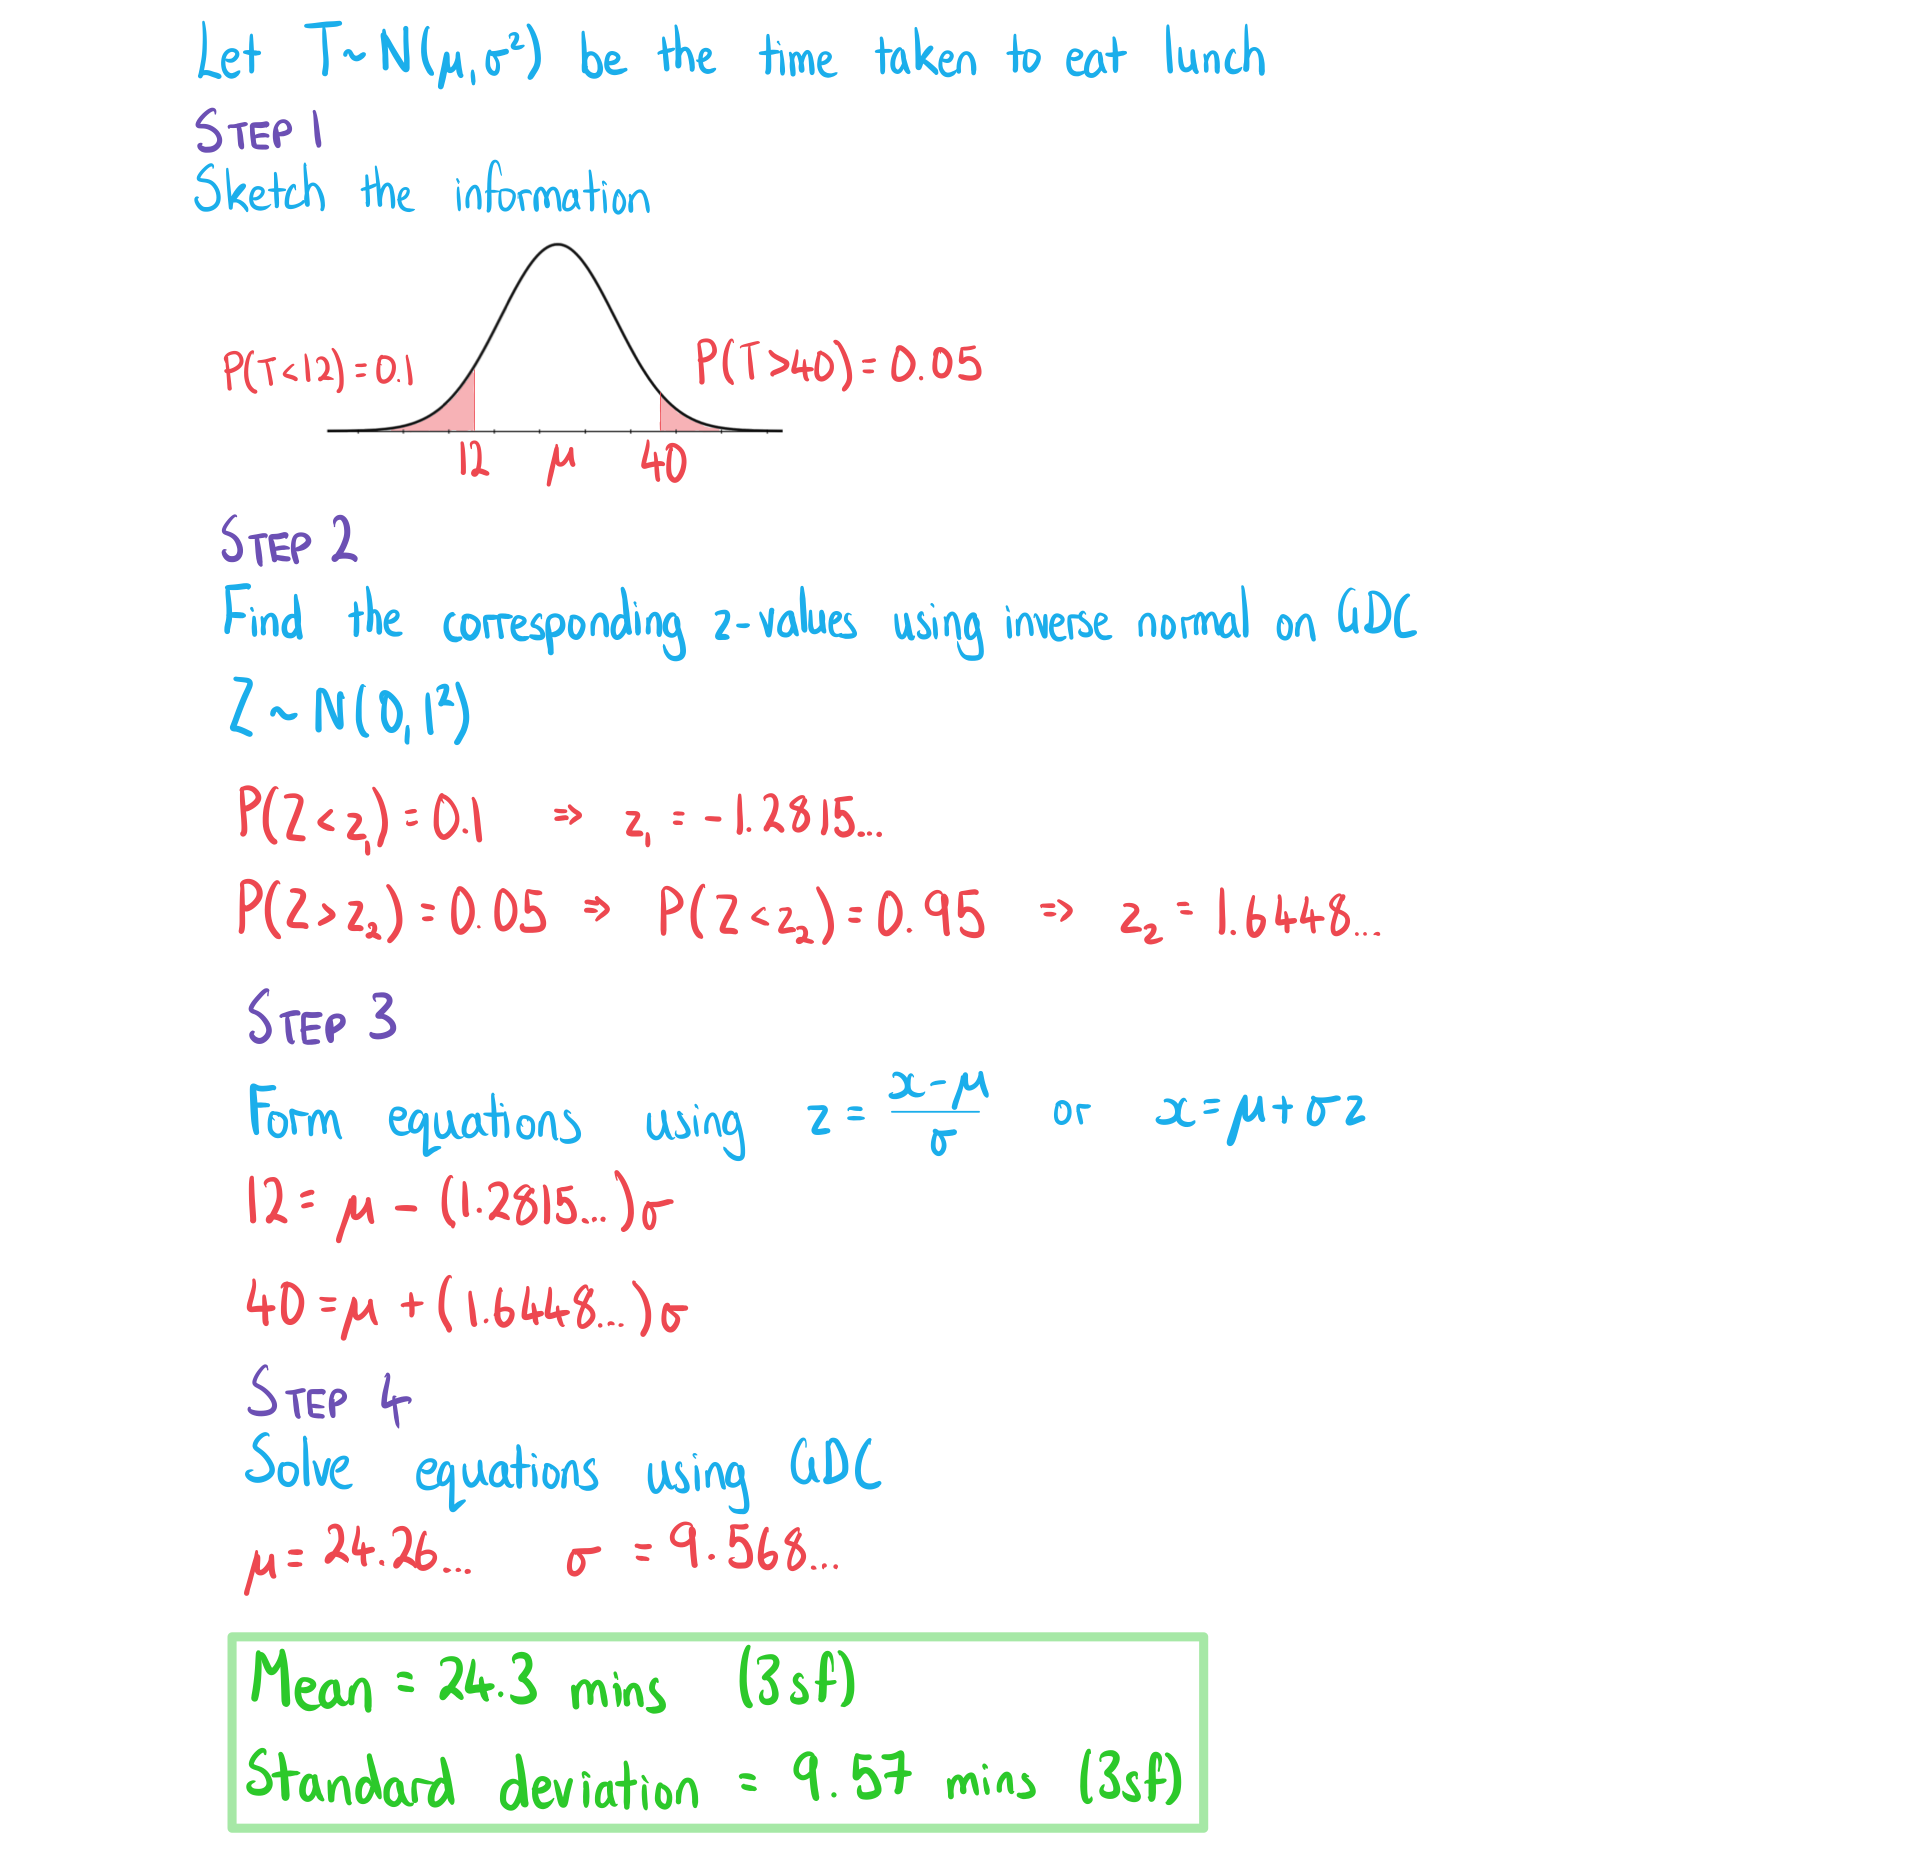 Let T~N(μ,σ²) be the time taken to eat lunch
STEP 1
Sketch the information
P(T<12)=0.1 P(T>40)=0.05
12 μ 40
STEP 2
Find the corresponding z-values using inverse normal on GDC
Z ~ N(0,1²)
P(Z<z₁)=0.1 ⇒ z₁ = -1.2815...
P(Z>z₂)=0.05 ⇒ P(Z<z₂)=0.95 ⇒ z₂ = 1.6448...
STEP 3
Form equations using z = (x-μ)/σ or x=μ+σz
12=μ-(1.2815...)σ
40=μ+(1.6448...)σ
STEP 4
Solve equations using GDC
μ=24.26... σ=9.568...
Mean = 24.3 mins (3sf)
Standard deviation = 9.57 mins (3sf)